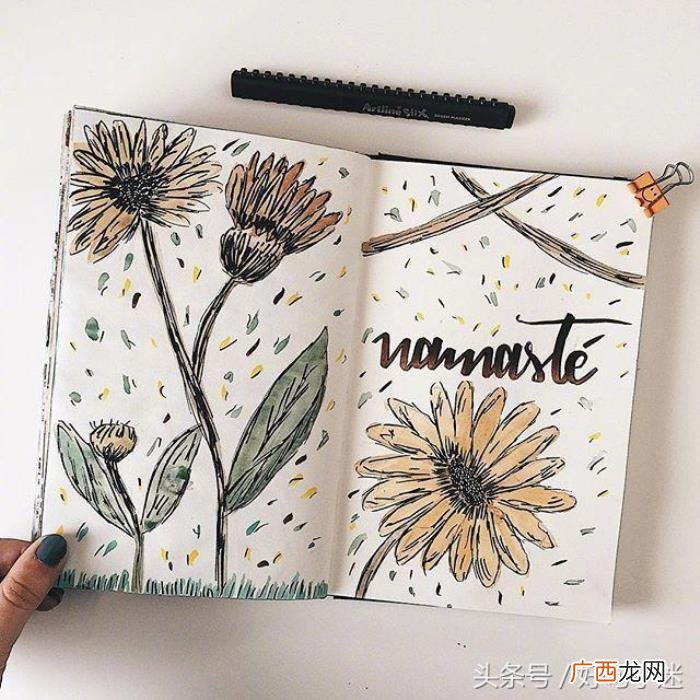 Artline Stix BRUSH MARKER
namasté
头条号 /
广西龙网
迷